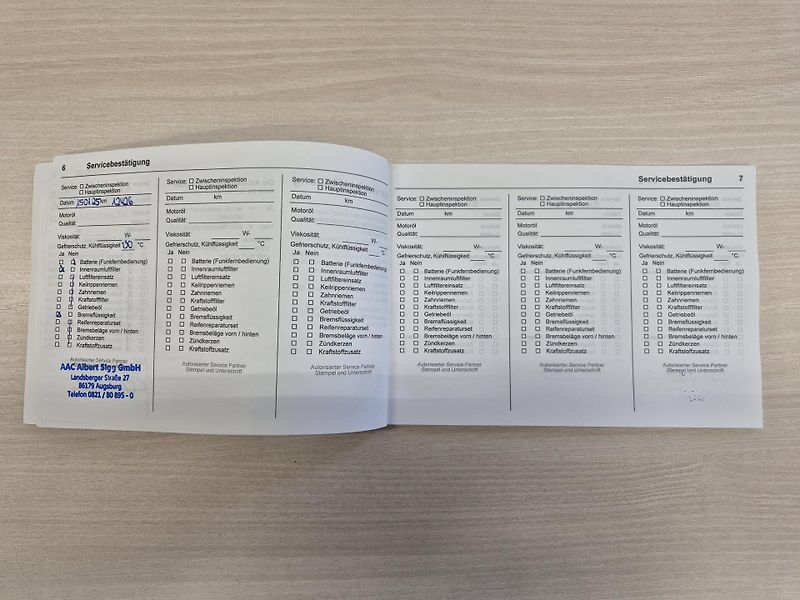 6 Servicebestätigung
Service: Zwischeninspektion
Hauptinspektion
Datum 150125 km 12426
Motoröl
Qualität:
Viskosität: W-
Gefrierschutz, Kühlflüssigkeit °C
Ja Nein
Batterie (Funkfernbedienung)
Innenraumluftfilter
Luftfiltereinsatz
Keilrippenriemen
Zahnriemen
Kraftstofffilter
Getriebeöl
Bremsflüssigkeit
Reifenreparaturset
Bremsbeläge vorn / hinten
Zündkerzen
Kraftstoffzusatz
Autorisierter Service Partner
AAC Albert Sigg GmbH
Landsberger Straße 27
86179 Augsburg
Telefon 0821 / 80 895 - 0
Service: Zwischeninspektion
Hauptinspektion
Datum km
Motoröl
Qualität:
Viskosität: W-
Gefrierschutz, Kühlflüssigkeit °C
Ja Nein
Batterie (Funkfernbedienung)
Innenraumluftfilter
Luftfiltereinsatz
Keilrippenriemen
Zahnriemen
Kraftstofffilter
Getriebeöl
Bremsflüssigkeit
Reifenreparaturset
Bremsbeläge vorn / hinten
Zündkerzen
Kraftstoffzusatz
Autorisierter Service Partner
Stempel und Unterschrift
Service: Zwischeninspektion
Hauptinspektion
Datum km
Motoröl
Qualität:
Viskosität: W-
Gefrierschutz, Kühlflüssigkeit °C
Ja Nein
Batterie (Funkfernbedienung)
Innenraumluftfilter
Luftfiltereinsatz
Keilrippenriemen
Zahnriemen
Kraftstofffilter
Getriebeöl
Bremsflüssigkeit
Reifenreparaturset
Bremsbeläge vorn / hinten
Zündkerzen
Kraftstoffzusatz
Autorisierter Service Partner
Stempel und Unterschrift
Servicebestätigung 7
Service: Zwischeninspektion
Hauptinspektion
Datum km
Motoröl
Qualität:
Viskosität: W-
Gefrierschutz, Kühlflüssigkeit °C
Ja Nein
Batterie (Funkfernbedienung)
Innenraumluftfilter
Luftfiltereinsatz
Keilrippenriemen
Zahnriemen
Kraftstofffilter
Getriebeöl
Bremsflüssigkeit
Reifenreparaturset
Bremsbeläge vorn / hinten
Zündkerzen
Kraftstoffzusatz
Autorisierter Service Partner
Stempel und Unterschrift
Service: Zwischeninspektion
Hauptinspektion
Datum km
Motoröl
Qualität:
Viskosität: W-
Gefrierschutz, Kühlflüssigkeit °C
Ja Nein
Batterie (Funkfernbedienung)
Innenraumluftfilter
Luftfiltereinsatz
Keilrippenriemen
Zahnriemen
Kraftstofffilter
Getriebeöl
Bremsflüssigkeit
Reifenreparaturset
Bremsbeläge vorn / hinten
Zündkerzen
Kraftstoffzusatz
Autorisierter Service Partner
Stempel und Unterschrift
Service: Zwischeninspektion
Hauptinspektion
Datum km
Motoröl
Qualität:
Viskosität: W-
Gefrierschutz, Kühlflüssigkeit °C
Ja Nein
Batterie (Funkfernbedienung)
Innenraumluftfilter
Luftfiltereinsatz
Keilrippenriemen
Zahnriemen
Kraftstofffilter
Getriebeöl
Bremsflüssigkeit
Reifenreparaturset
Bremsbeläge vorn / hinten
Zündkerzen
Kraftstoffzusatz
Autorisierter Service Partner
Stempel und Unterschrift